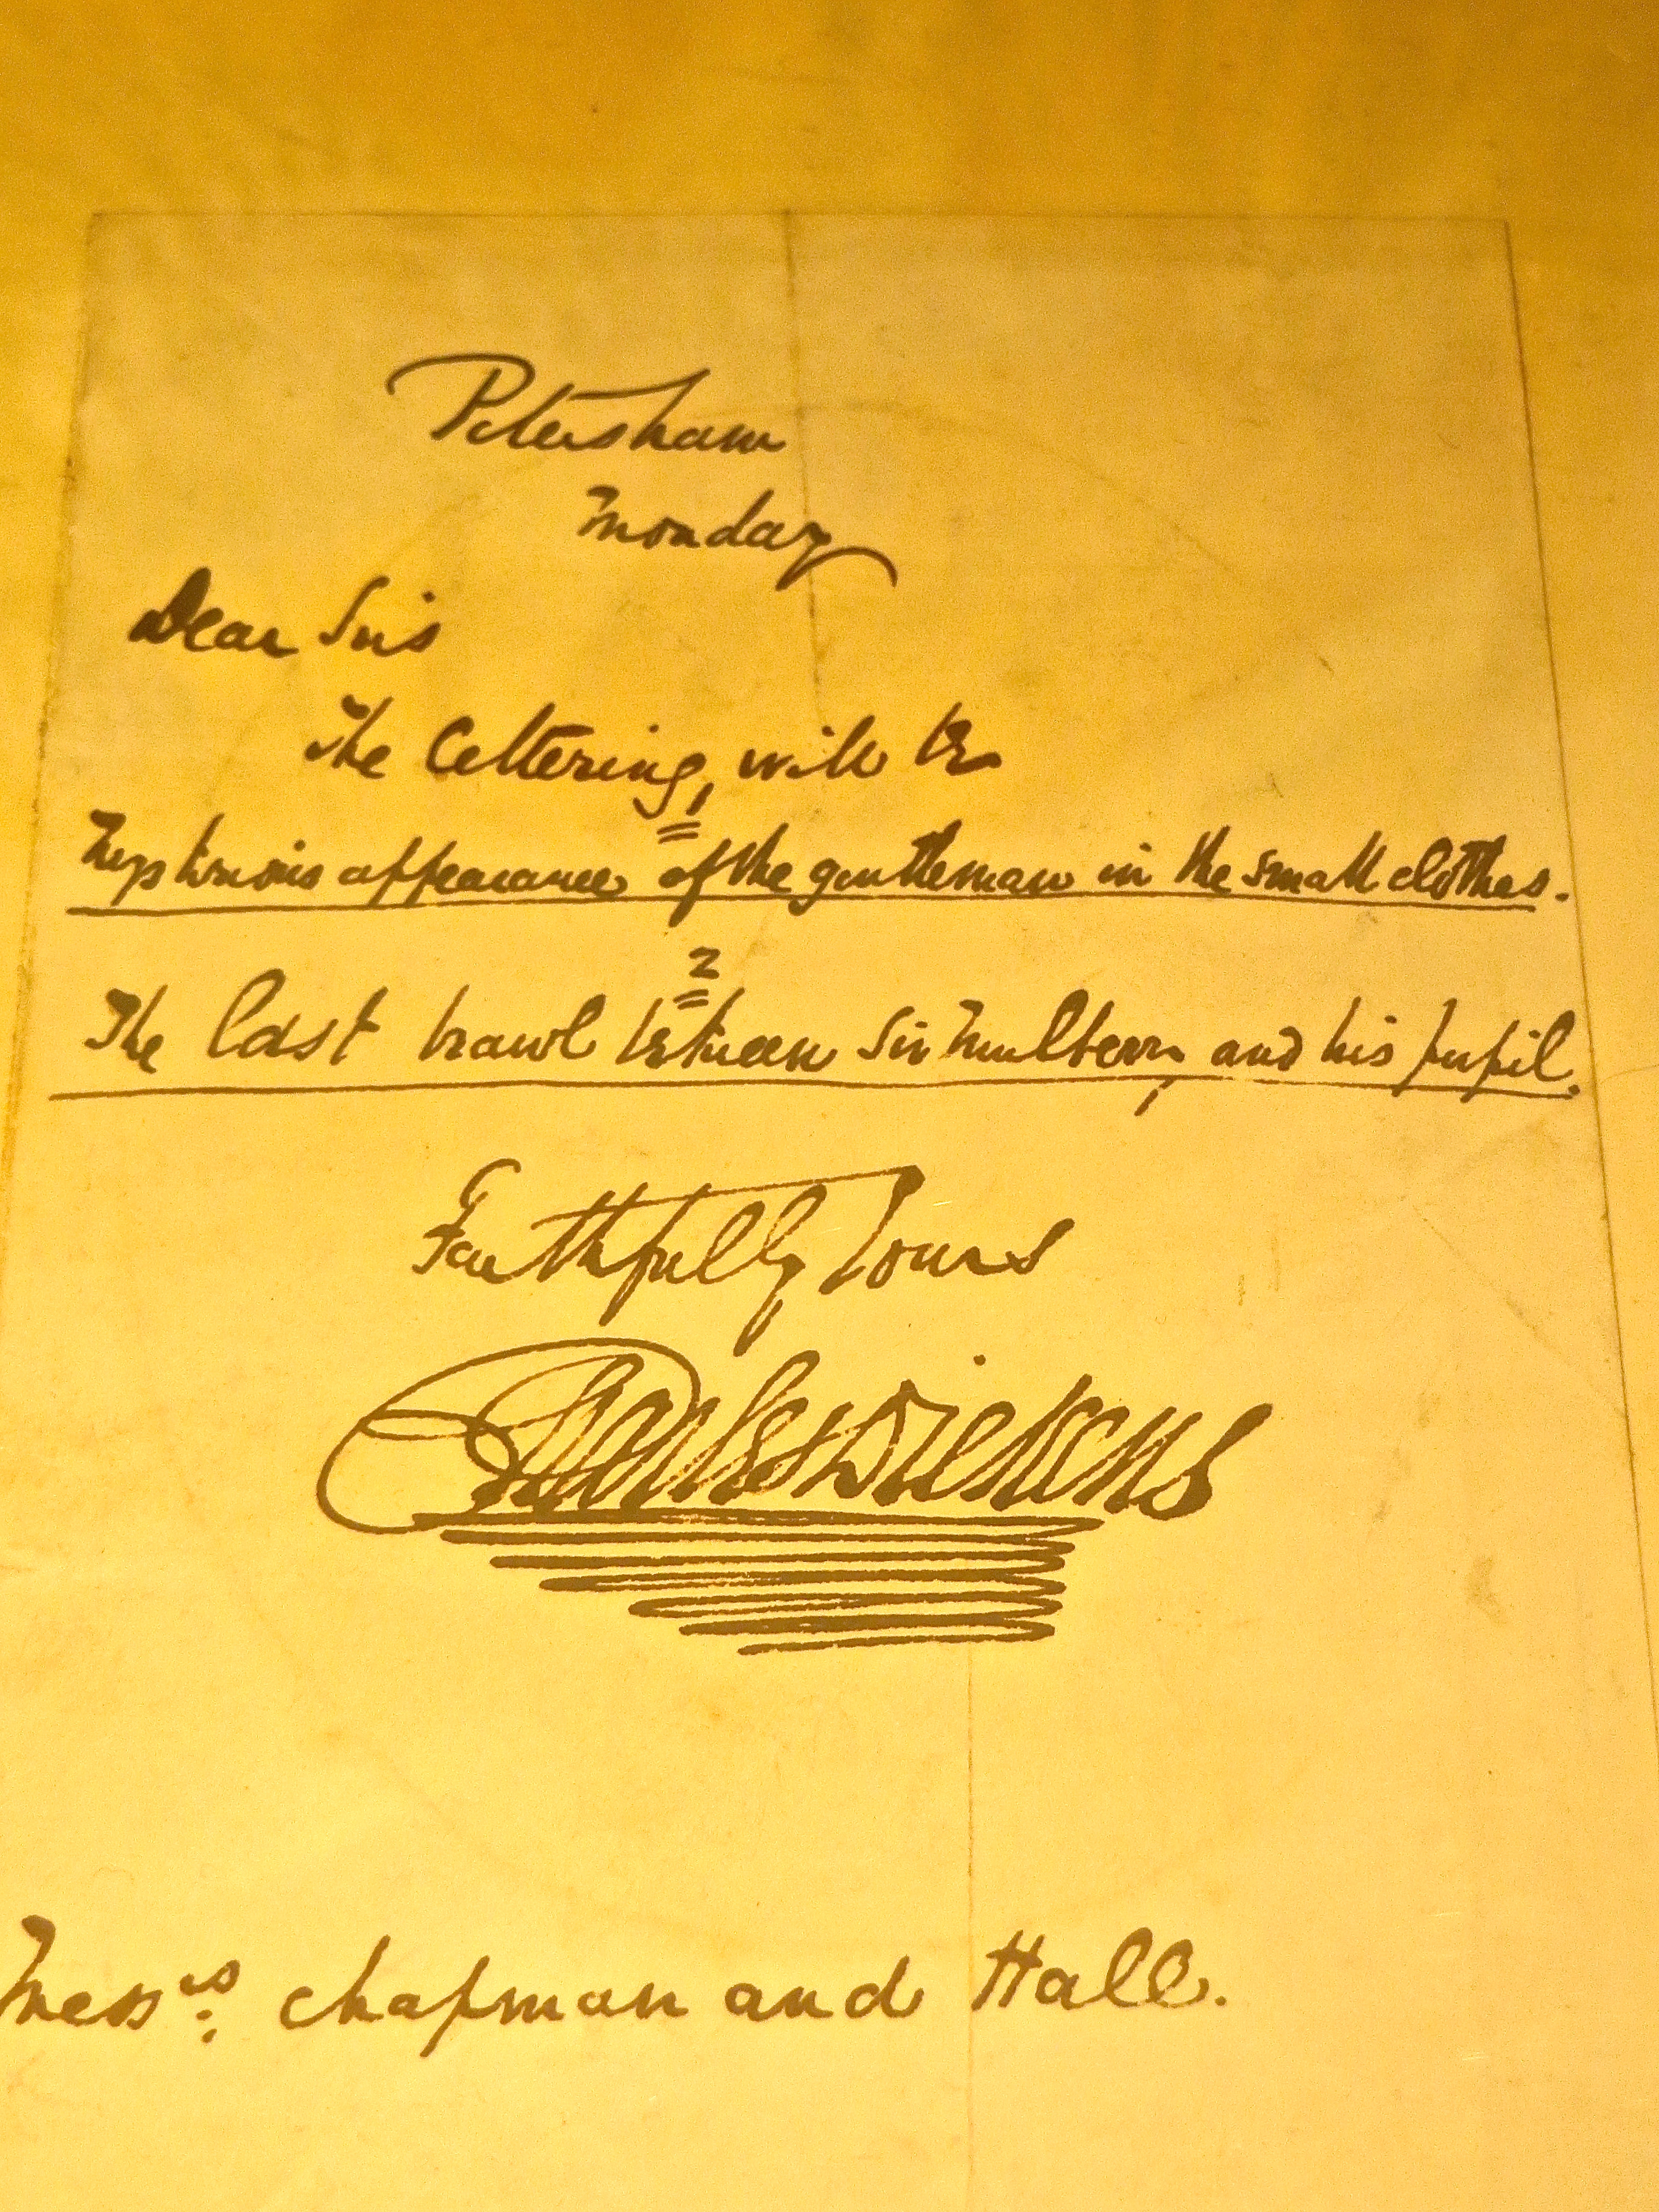 Petersham
Monday
Dear Sirs
The Lettering, will be
1
Mysterious appearance of the gentleman in the small clothes.
2
The last brawl between Sir Mulberry and his pupil.
Faithfully Yours
Charles Dickens
Mess.rs Chapman and Hall.